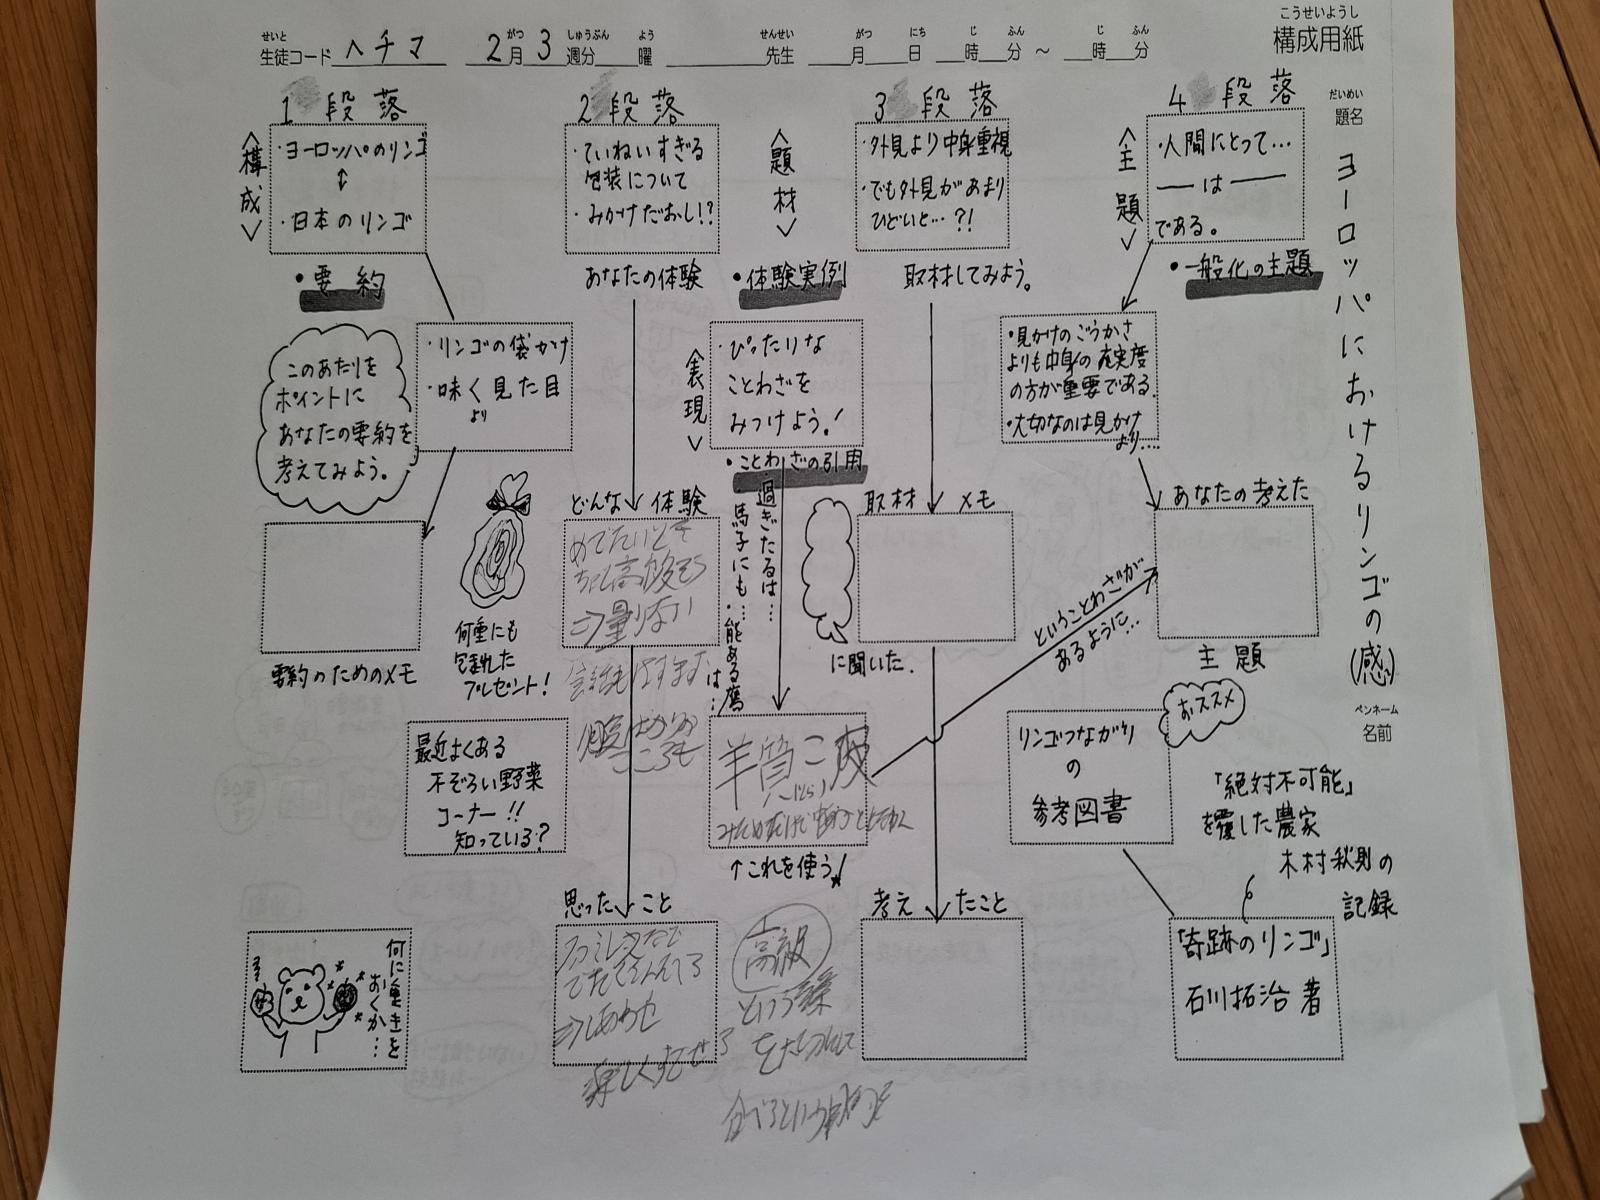 こうせいようし
構成用紙
せいと がつ しゅうぶん よう せんせい がつ にち じ ふん じ ふん
生徒コード ヘチマ 2月3週分 曜 先生 月 日 時 分 ～ 時 分
だいめい
題名
ヨーロッパにおけるリンゴの(感)
ペンネーム
名前
1 段落
〈構成〉
・ヨーロッパのリンゴ
↕
・日本のリンゴ
・要約
このあたりを
ポイントに
あなたの要約を
考えてみよう。
・リンゴの袋かけ
・味く見た目
より
要約のためのメモ
何重にも
包まれた
プレゼント!
最近よくある
不ぞろい野菜
コーナー!!
知っている?
何に重きを
おくか…
2 段落
・ていねいすぎる
包装について
・みかけだおし!?
あなたの体験
どんな体験
めでたいとき
⇒量少ない
思ったこと
ファミレスなどで
⇒しあわせ
〈題材〉
・体験実例
〈表現〉
・ぴったりな
ことわざを
みつけよう!
・ことわざの引用
過ぎたるは…
馬子にも…
・能ある鷹
は…
羊質こ皮
↑これを使う!
高級
という
3 段落
・外見より中身重視
・でも外見があまり
ひどいと…?!
取材してみよう。
取材メモ
に聞いた.
考えたこと
4 段落
〈主題〉
・人間にとって…
── は ──
である。
・一般化の主題
・見かけのごうかさ
よりも中身の充実度
の方が重要である.
・大切なのは見かけ
より…
あなたの考えた
主題
ということわざが
あるように…
おススメ
リンゴつながり
の
参考図書
「絶対不可能」
を覆した農家
木村秋則の
記録
「奇跡のリンゴ」
石川拓治 著